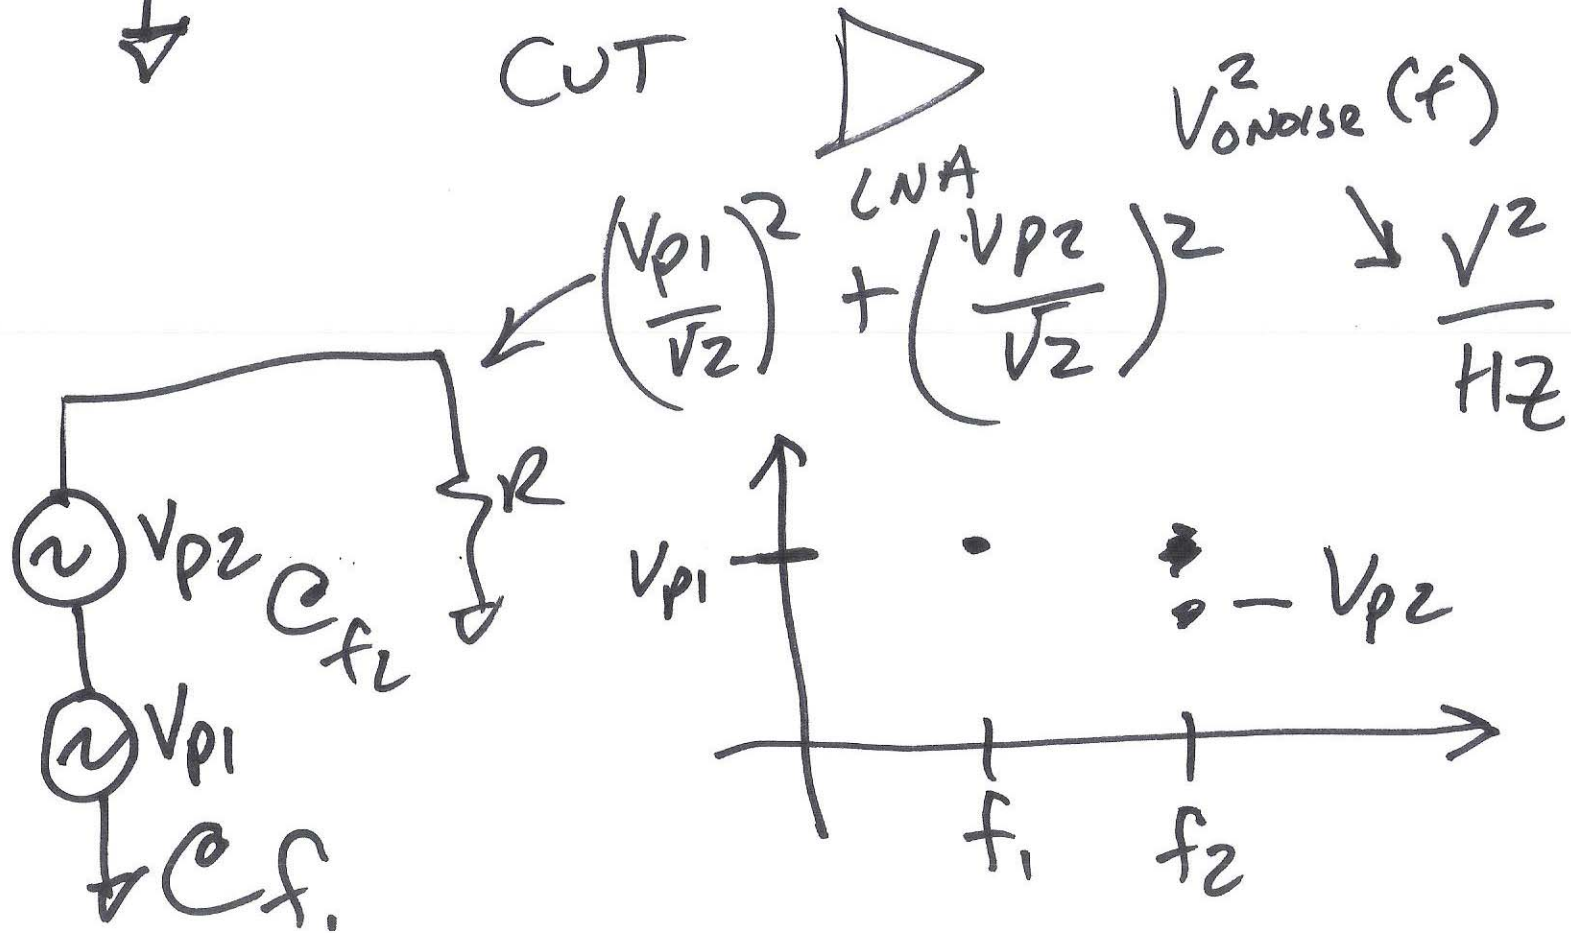 CUT
LNA
V²ONOISE (f)
(Vp1/√2)² + (Vp2/√2)²
V²/HZ
R
Vp2
@ f2
Vp1
@ f1
Vp1
Vp2
f1
f2